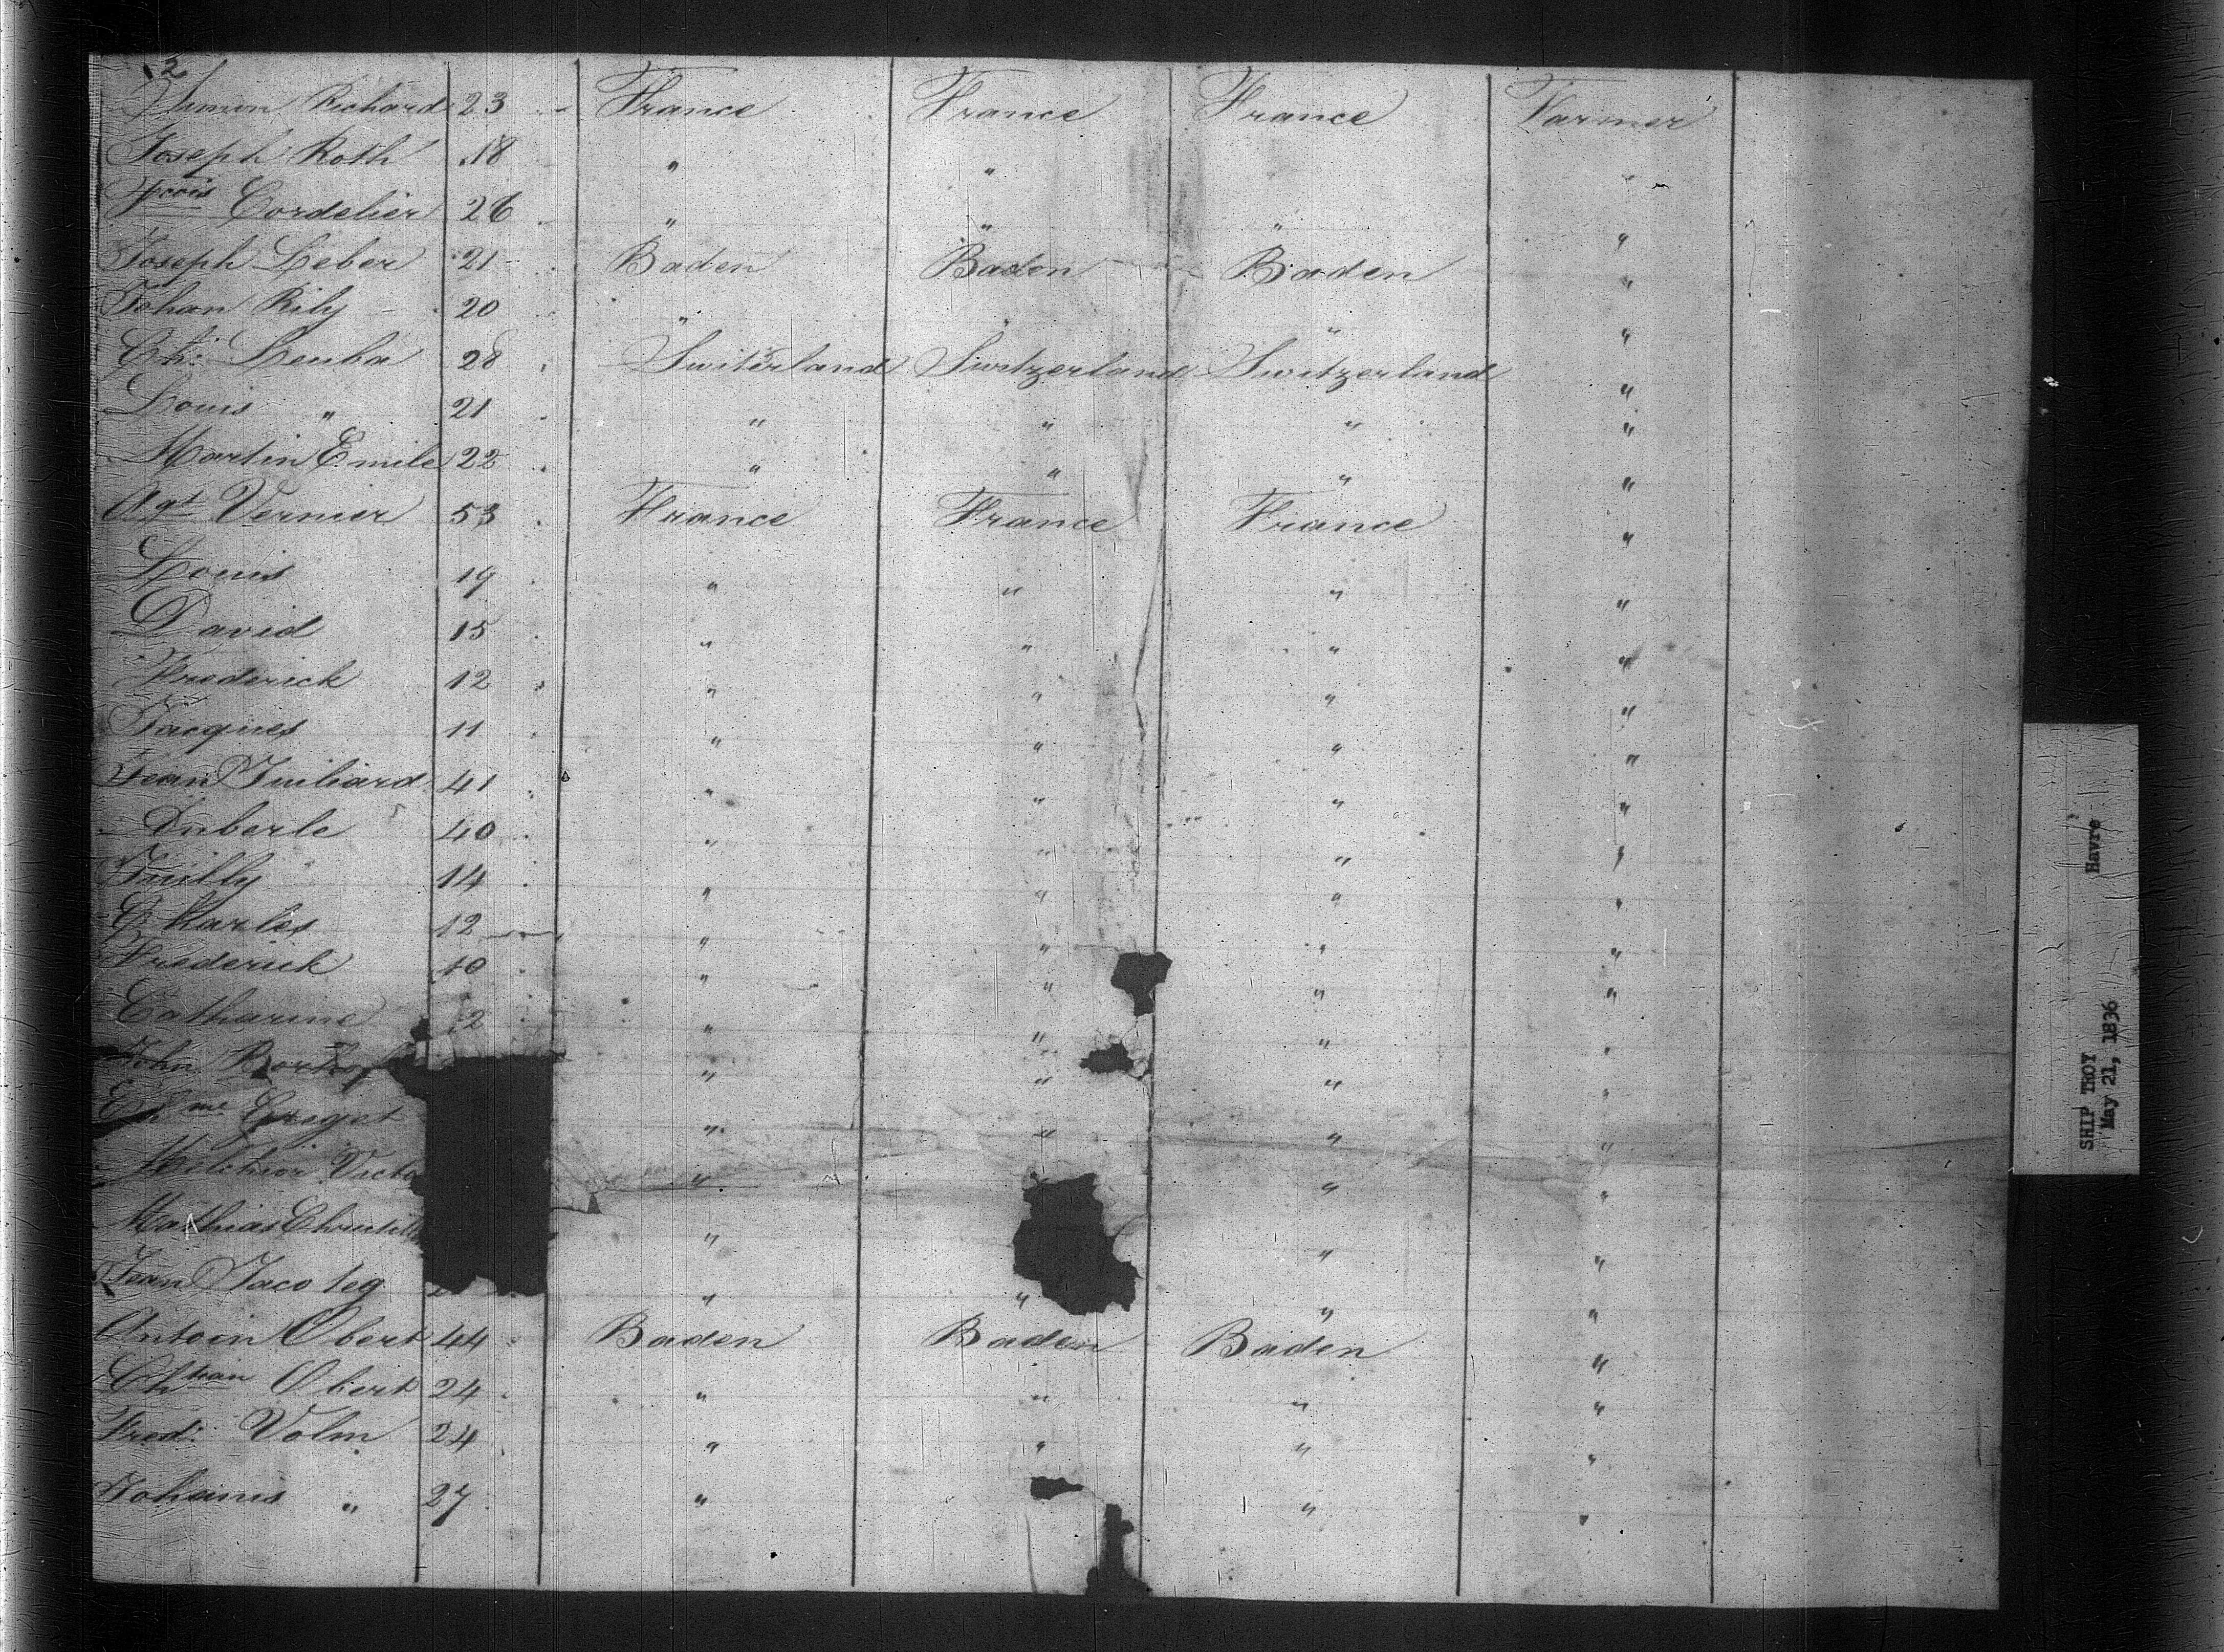 2
Simon Richard 23 France France France Farmer
Joseph Roth 18 " " "
Fcois Cordelier 26 " " " "
Joseph Leber 21 Baden Baden Baden "
Johan Rily 20 " " " "
Ch: Leuba 28 Switzerland Switzerland Switzerland "
Louis " 21 " " " "
Martin Emile 22 " " " "
Agt Vernier 53 France France France "
Louis 19 " " " "
David 15 " " " "
Frederick 12 " " " "
Jacques 11 " " " "
Jean Juiliard 41 " " " "
Duberle 40 " " " "
Juilly 14 " " " "
Charles 12 " " " "
Frederick 10 " " " "
Catharine 2 " " " "
John " " " "
" " " "
Melchior Victo " " "
Mathias " " "
Jean Jaco " " " "
Antoin Obert 44 Baden Baden Baden "
Chtian Obert 24 " " " "
Fred: Volm 24 " " " "
Johanis " 27 " " "
SHIP TROY Havre
May 21, 1836